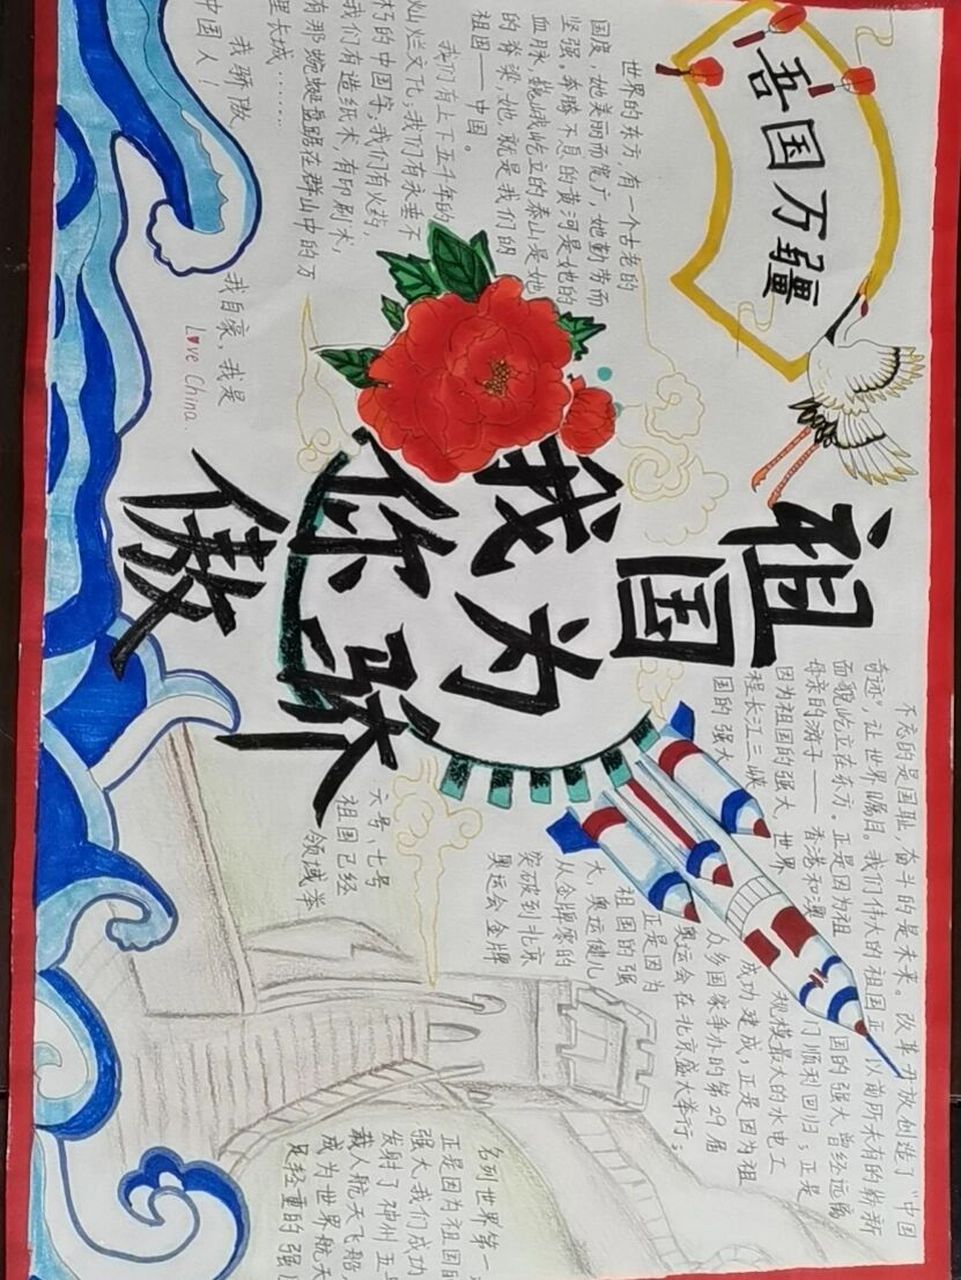 吾国万疆
祖国
我为
你骄
傲
世界的东方,有一个古老的
国度,她美丽而宽广,她勤劳而
坚强。奔腾不息的黄河是她的
血脉,巍峨屹立的泰山是她
的脊梁,她,就是我们的
祖国——中国。
我们有上下五千年的
灿烂文化;我们有永垂不
朽的中国字;我们有火药,
我们有造纸术,有印刷术,
有那蜿蜒盘踞在群山中的万
里长城……
我骄傲
我自豪,我是
中国人!
Love China.
不忘的是国耻,奋斗的是未来。改革开放创造了“中国
奇迹”,让世界瞩目。我们伟大的祖国正以前所未有的崭新
面貌屹立在东方。正是因为祖国的强大,曾经远离
母亲的游子——香港和澳门顺利回归;正是
因为祖国的强大,世界规模最大的水电工
程长江三峡成功建成;正是因为祖
国的强大
众多国家争办的第29届
奥运会在北京盛大举行;
正是因为
祖国的强
大,奥运健儿
从金牌零的
突破到北京
奥运会金牌
名列世界第一
正是因为祖国的
强大,我们成功
发射了神州五号
六号、七号
载人航天飞船,
祖国已经
成为世界航天
领域举
足轻重的强